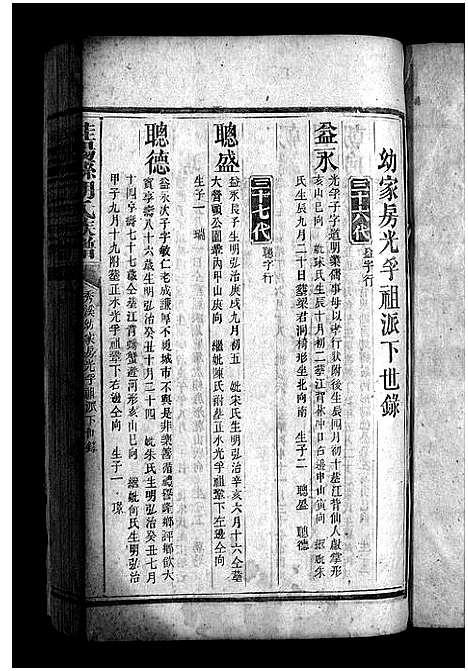 幼家房光孚祖派下世錄
三十六代 益字行
益永
光孚子字道明業儒事母以孝行狀附後生辰四月初十葬江背仙人獻掌形
亥山巳向 妣宋氏生辰十月初二葬江背林中口右邊申山寅向 繼妣朱
氏生辰九月二十日葬翠君洞椅形坐北向南 生子二 聰盛 聰德
三十七代 聰字行
聰盛
益永長子生明弘治庚戌九月初五 妣宋氏生明弘治辛亥六月十六仝葬
大營頭公園畔丙甲山庚向 繼妣陳氏附葬正水光孚祖墾下左邊仝向
生子一 瑞
聰德
益永次子字敏仁老成謙厚不履城市不與是非樂善循禮徑隆鄉評鄉飲大
賓享壽八十六歲生明弘治癸丑十月二十四 妣朱氏生明弘治癸丑七月
十四享壽七十七歲仝葬江背螃蟹遊河形亥山巳向 繼妣何氏生明弘治
甲子九月十九附葬正水光孚祖墾下右邊仝向 生子一 璟
胡氏族譜
秀溪幼家房光孚祖派下世錄